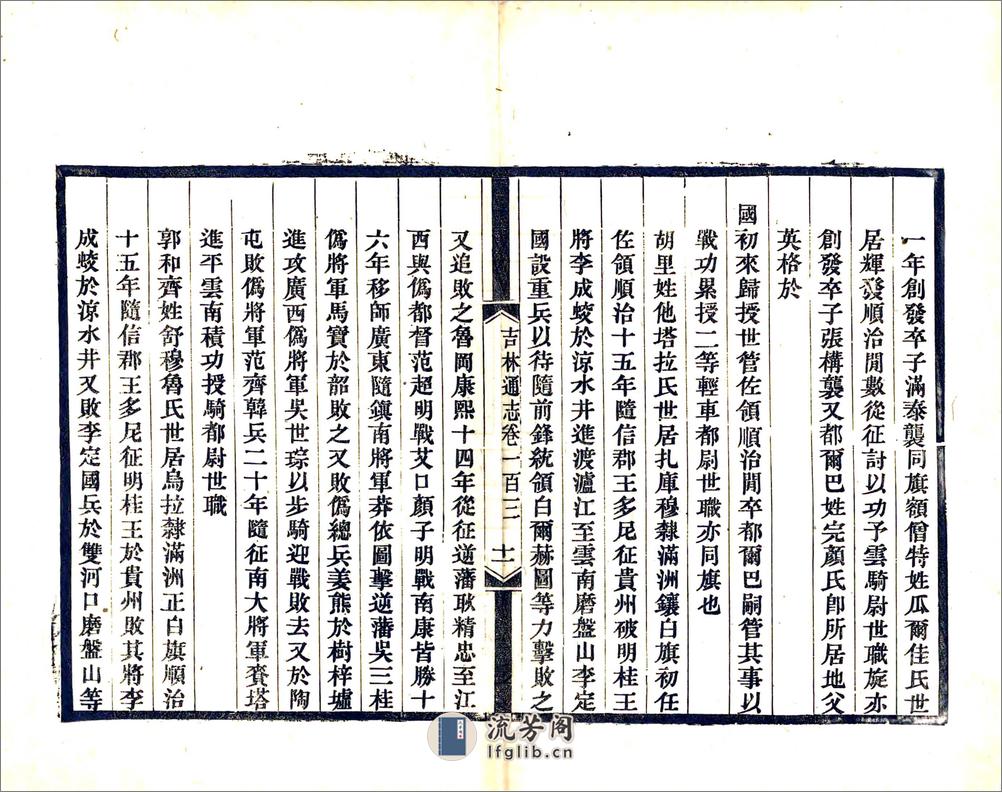 一年創發卒子滿泰襲同旗額僧特姓瓜爾佳氏世
居輝發順治閒數從征討以功予雲騎尉世職旋亦
創發卒子張構襲又都爾巴姓完顏氏卽所居地父
英格於
國初來歸授世管佐領順治閒卒都爾巴嗣管其事以
戰功累授二等輕車都尉世職亦同旗也
胡里姓他塔拉氏世居扎庫穆隸滿洲鑲白旗初任
佐領順治十五年隨信郡王多尼征貴州破明桂王
將李成蛟於涼水井進渡瀘江至雲南磨盤山李定
國設重兵以待隨前鋒統領白爾赫圖等力擊敗之
吉林通志卷一百三 十一
又追敗之魯岡康熙十四年從征逆藩耿精忠至江
西與僞都督范超明戰艾口顏子明戰南康皆勝十
六年移師廣東隨鎭南將軍莽依圖擊逆藩吳三桂
僞將軍馬寶於韶敗之又敗僞總兵姜熊於樹梓墟
進攻廣西僞將軍吳世琮以步騎迎戰敗去又於陶
屯敗僞將軍范齊韓兵二十年隨征南大將軍賚塔
進平雲南積功授騎都尉世職
郭和齊姓舒穆魯氏世居烏拉隸滿洲正白旗順治
十五年隨信郡王多尼征明桂王於貴州敗其將李
成蛟於涼水井又敗李定國兵於雙河口磨盤山等
流芳阁
lfglib.cn